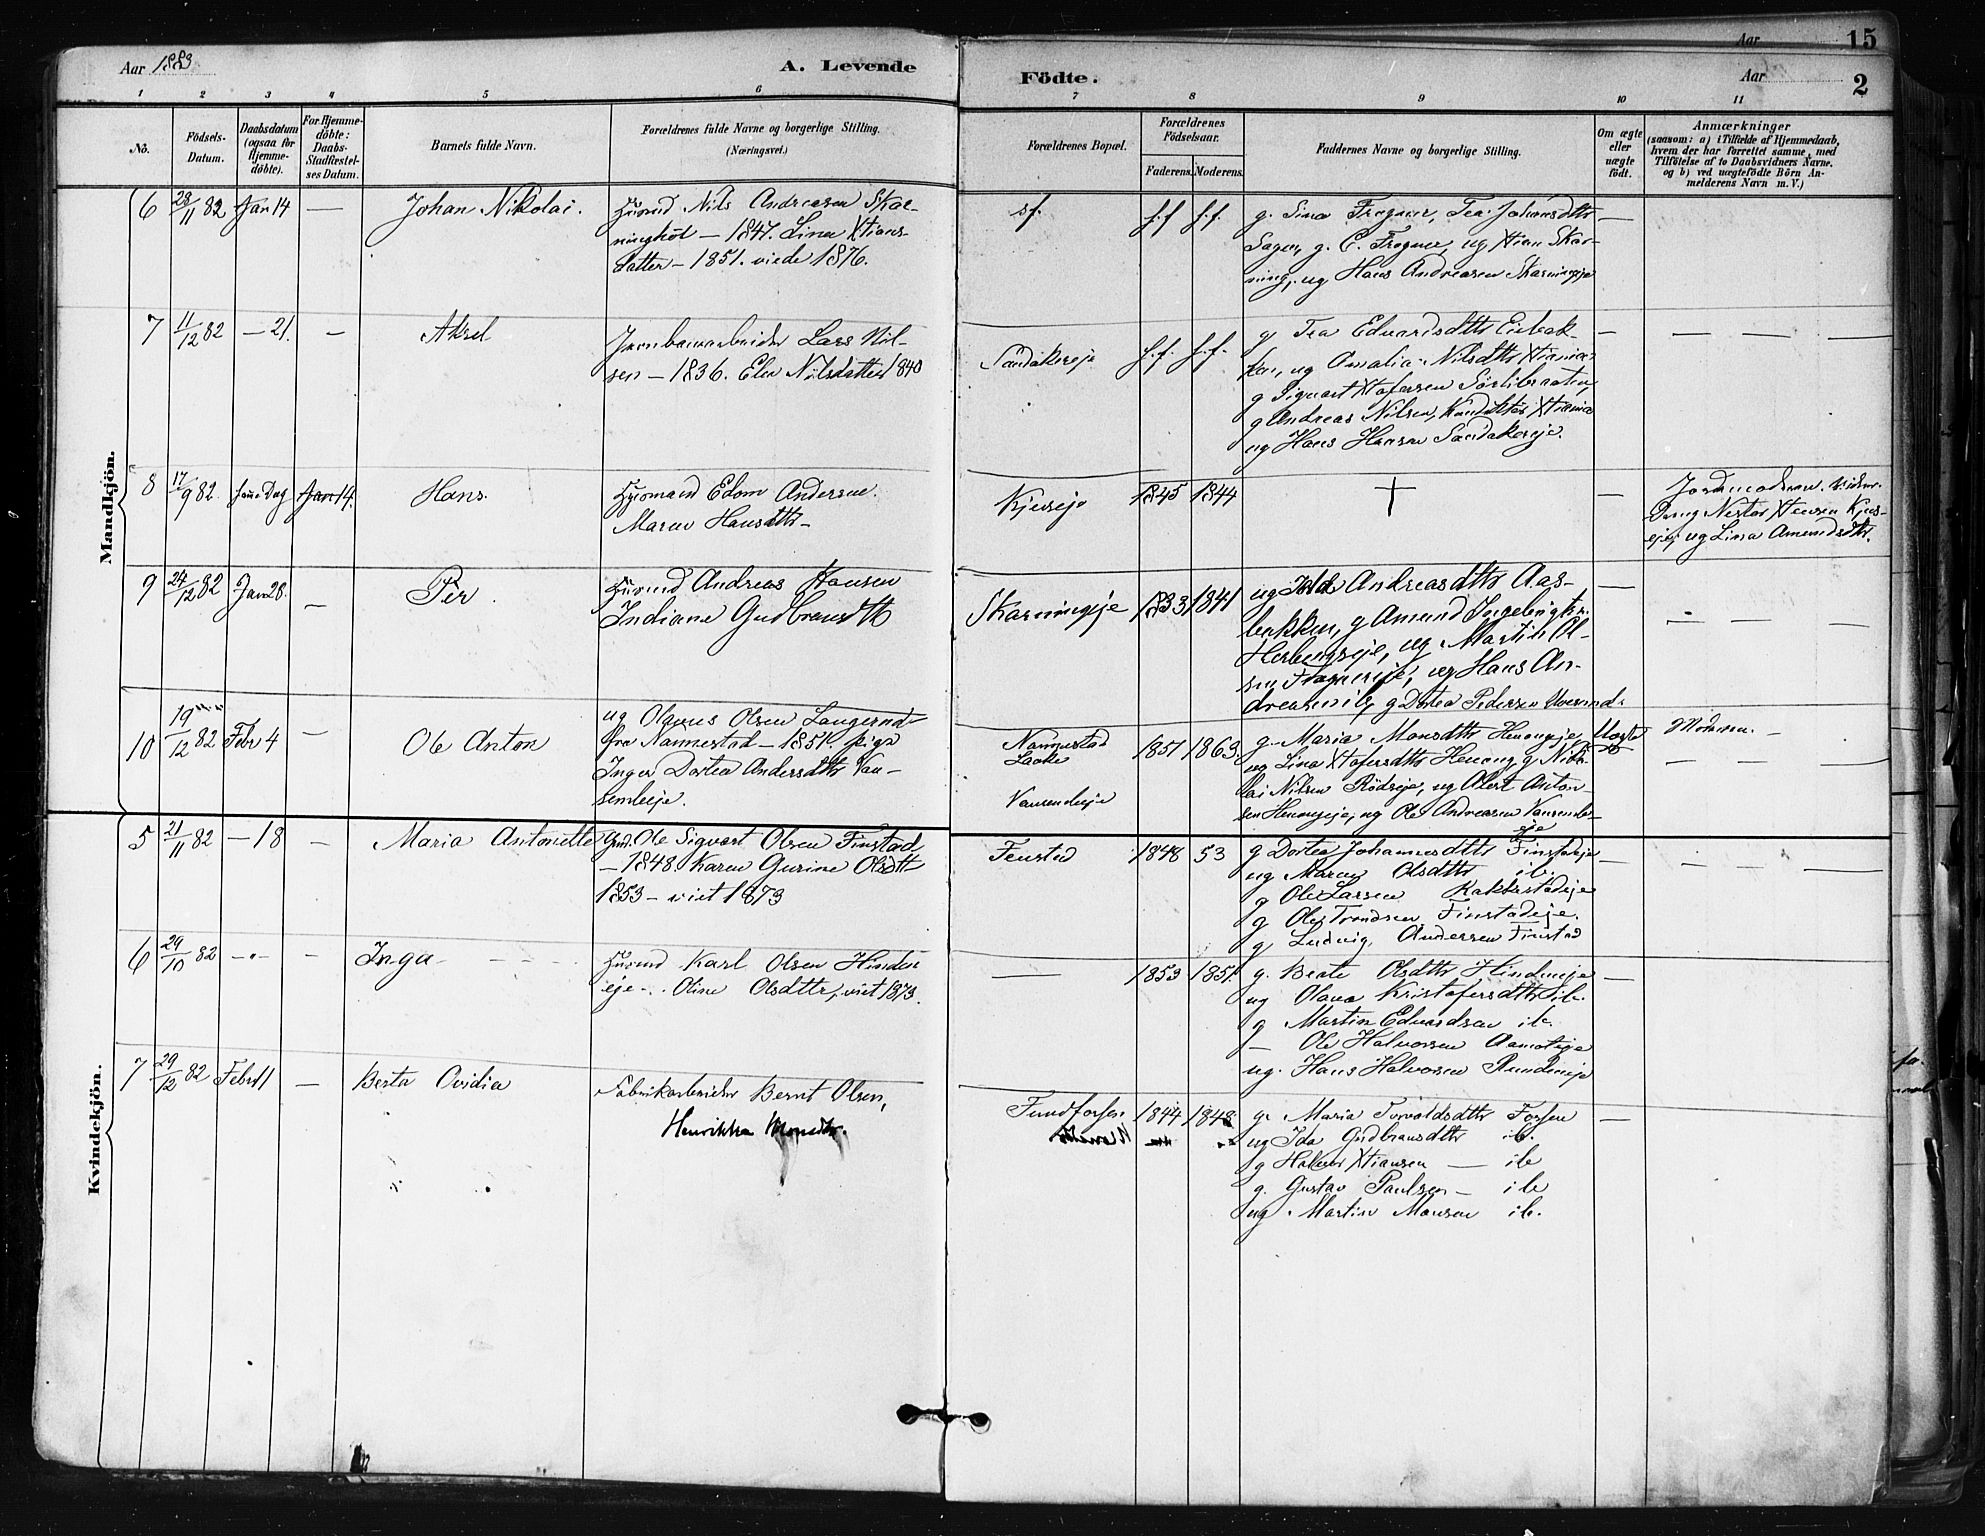 Aar 1883
A. Levende
Födte.
Aar 15
Aar 2
1 2 3 4 5 6 7 8 9 10 11
No.
Födsels-
Datum.
Daabsdatum
(ogsaa for
Hjemme-
döbte).
For Hjemme-
döbte:
Daabs-
Stadfæstel-
ses Datum.
Barnets fulde Navn.
Forældrenes fulde Navne og borgerlige Stilling.
(Næringsvei.)
Forældrenes Bopæl.
Forældrenes
Födselsaar.
Faderens. Moderens.
Faddernes Navne og borgerlige Stilling.
Om ægte
eller
uægte
födt.
Anmærkninger
(saasom: a) i Tilfælde af Hjemmedaab,
hvem der har forrettet samme, med
Tilföielse af to Daabsvidners Navne.
og b) ved uægtefödte Börn An-
melderens Navn m. V.)
Mandkjön.
6 28/11 82 Jan 14 — Johan Nikolai.
Nils Andreasen Skar-
ninghöl — 1847. Lina Xtians-
datter — 1851. viede 1876.
sf. f.f f.f.
g. Lina Frogner, Tea Johansdtr
g. E. Frogner, ug Xtian Skar-
ning, ug Hans Andreasen Skarningeje
—
7 11/12 82 — 21. — Aksel
Jernbanearbeider Lars Nil-
sen — 1836. Elen Nilsdatter 1840
Sandakereje f.f. f.f.
g Tea Edvardsdtr Eiebak-
ken, ug Amalia Nilsdtr Xtiania
g Sigvart Xtofersen Sörlibraaten,
g Andreas Nilsen, Konduktör Xtiania
ug Hans Hansen Sandakereje.
— — — —
8 17/9 82. samme Dag Jan 14. Hans.
Edom Andersen.
Maren Hansdtr —
Kjoseje 1845 1844 † —
Jordmoderen. Vidner
Nestor Xtensen Kjos-
eje, ug Lina Amundsdtr.
9 24/12 82 Jan 28. — Per.
Andreas Hansen
Indiane Gudbransdtr
Skarningeje 1833 1841
ug Andreasdtr Aas-
bakken, g Amund
ug Martin Ol-
sen Frognereje, ug Hans An-
dreasen g Dortea Pedersen
— — — —
10 19/12 82 Febr 4 — Ole Anton
ug Olaves Olsen Langerud
fra Nannestad — 1851. pige
Inger Dortea Andersdtr Van-
semeje.
Nannestad
Vansemeje
1851 1863.
g. Maria Monsdtr Henongeje
ug Lina Xtofersdtr Henong g Niko-
lai Nilsen Rödseje, ug Albert Anton-
sen Henongeje, ug Ole Andreasen Vansem-
eje
Uægte
Moderen. —
— — —
Kvindekjön.
5 21/11 82 — 18 — Maria Antonette
Ole Sigvart Olsen Finstad
— 1848. Karen Gurine Olsdtr
1853 — viet 1873
Fenstad 1848 53
g Dortea Johannesdtr Finstadeje
ug Maren Olsdtr ib.
g Ole Larsen Rakkestadeje
g Ole Trondsen Finstadeje.
g Ludvig Andersen Finstad
— — — —
6 29/10 82 — " — — Inga
Karl Olsen Hinden-
eje — Oline Olsdtr, viet 1873.
— 1853 1851
g. Beate Olsdtr Hindeneje
ug Olava Kristofersdtr ib.
g Martin Edvardsen ib.
— Ole Halvorsen Aamoteje
ug. Hans Halvorsen Rundeneje
—
7 29/12 82 Febr 11 — Berta Ovidia
Fabrikarbeider Bernt Olsen,
Henrikka Monsdtr.
Fundforsen 1844 1848
g. Maria Torvaldsdtr Forsen
ug Ida Gudbransdtr ib.
g Haken Xtiansen — ib
g. Gustav Paulsen — ib
ug Martin Monsen ib.
—